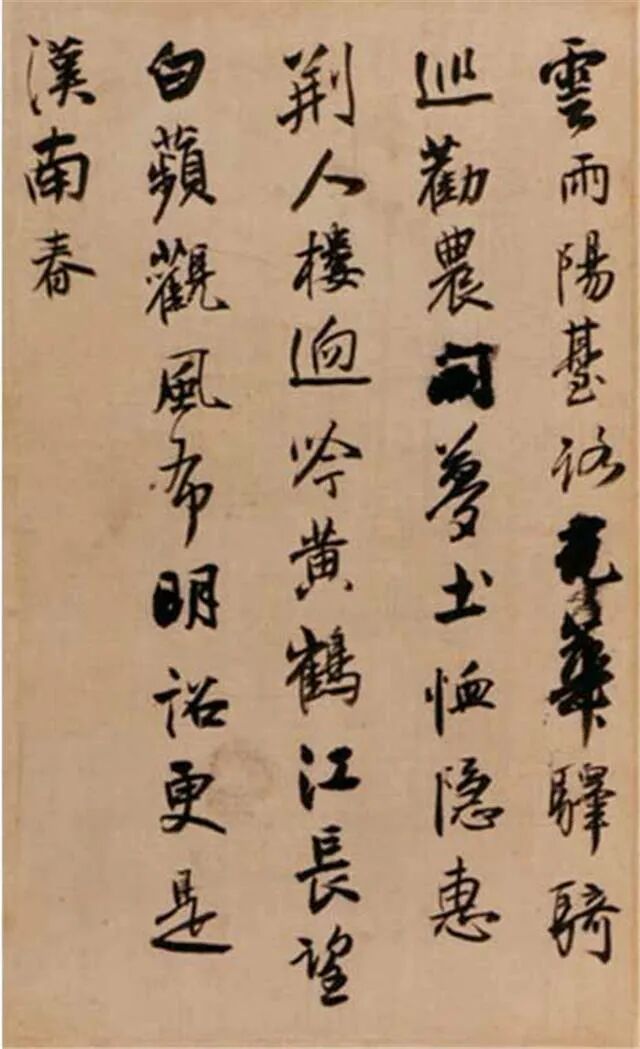 雲雨陽臺路光華驛騎
巡勸農夢土恤隱惠
荆人樓迥吟黃鶴江長望
白蘋觀風布明詔更是
漢南春